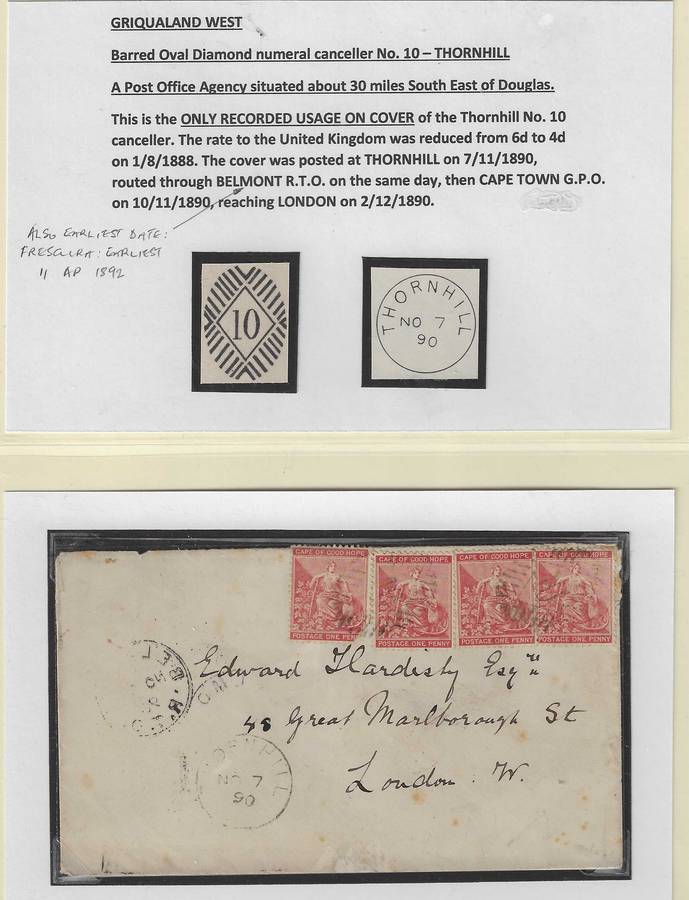 GRIQUALAND WEST
Barred Oval Diamond numeral canceller No. 10 – THORNHILL
A Post Office Agency situated about 30 miles South East of Douglas.
This is the ONLY RECORDED USAGE ON COVER of the Thornhill No. 10
canceller. The rate to the United Kingdom was reduced from 6d to 4d
on 1/8/1888. The cover was posted at THORNHILL on 7/11/1890,
routed through BELMONT R.T.O. on the same day, then CAPE TOWN G.P.O.
on 10/11/1890, reaching LONDON on 2/12/1890.
ALSO EARLIEST DATE:
FRESCURA: EARLIEST
11 AP 1892
10
THORNHILL
NO 7
90
CAPE OF GOOD HOPE CAPE OF GOOD HOPE CAPE OF GOOD HOPE CAPE OF GOOD HOPE
POSTAGE ONE PENNY POSTAGE ONE PENNY POSTAGE ONE PENNY POSTAGE ONE PENNY
BEL
Edward Hardisty Esqre
48 Great Marlborough St
London. W.
ORNHILL
NO 7
90